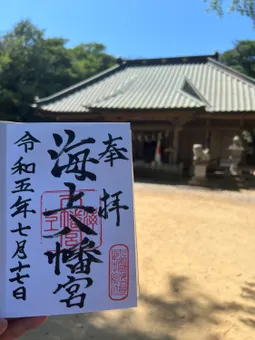 奉拝
海上八幡宮
令和五年七月十七日